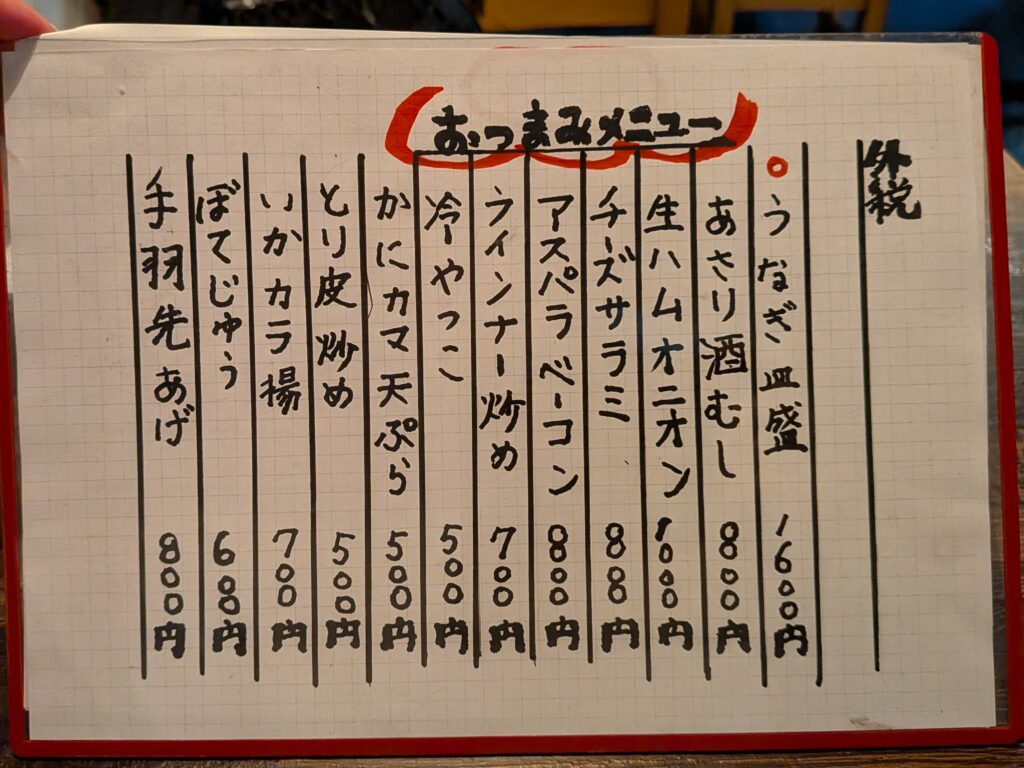 おつまみメニュー
外税
うなぎ皿盛 1600円
あさり酒むし 800円
生ハムオニオン 1000円
チーズサラミ 880円
アスパラベーコン 800円
ウインナー炒め 700円
冷ーやっこ 500円
かにカマ天ぷら 500円
とり皮炒め 500円
いかカラ揚 700円
ぼてじゅう 600円
手羽先あげ 800円